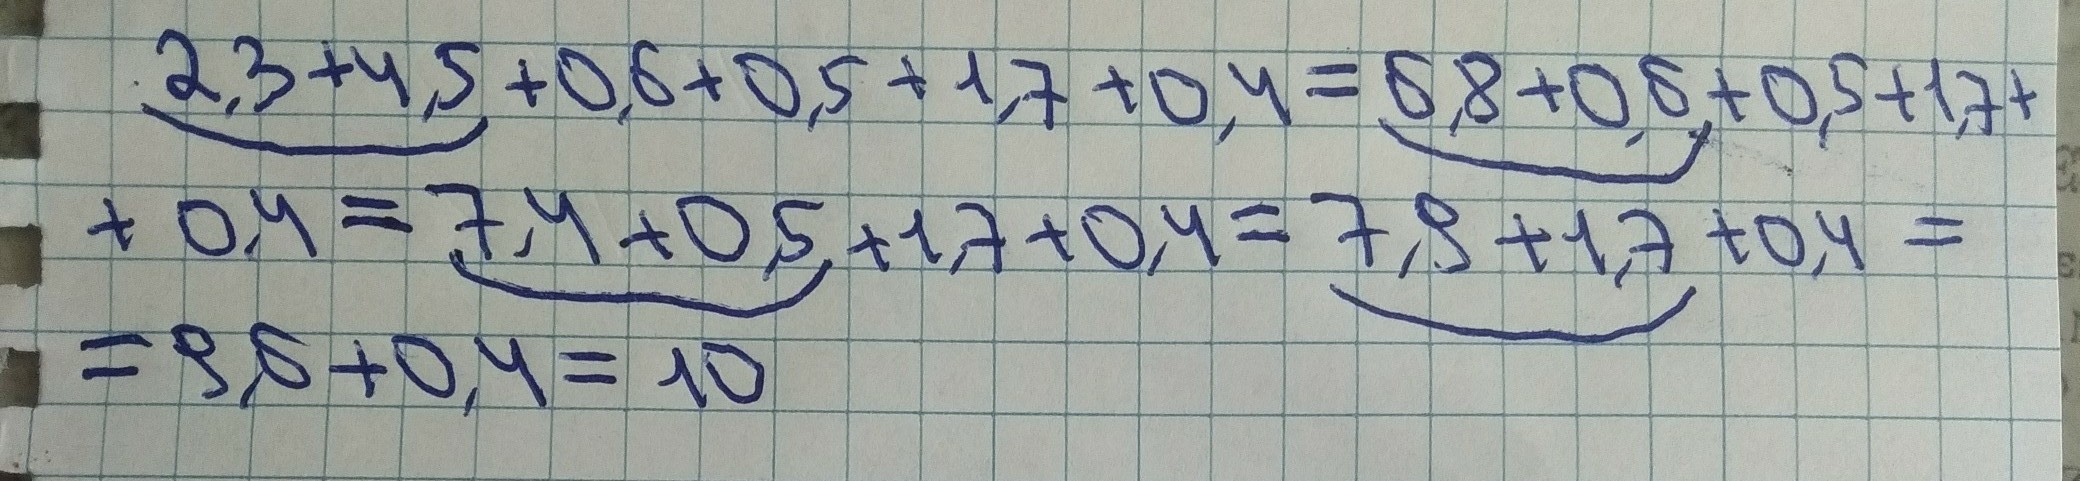 2,3+4,5+0,6+0,5+1,7+0,4=6,8+0,6+0,5+1,7+
+0,4=7,4+0,5+1,7+0,4=7,9+1,7+0,4=
=9,6+0,4=10